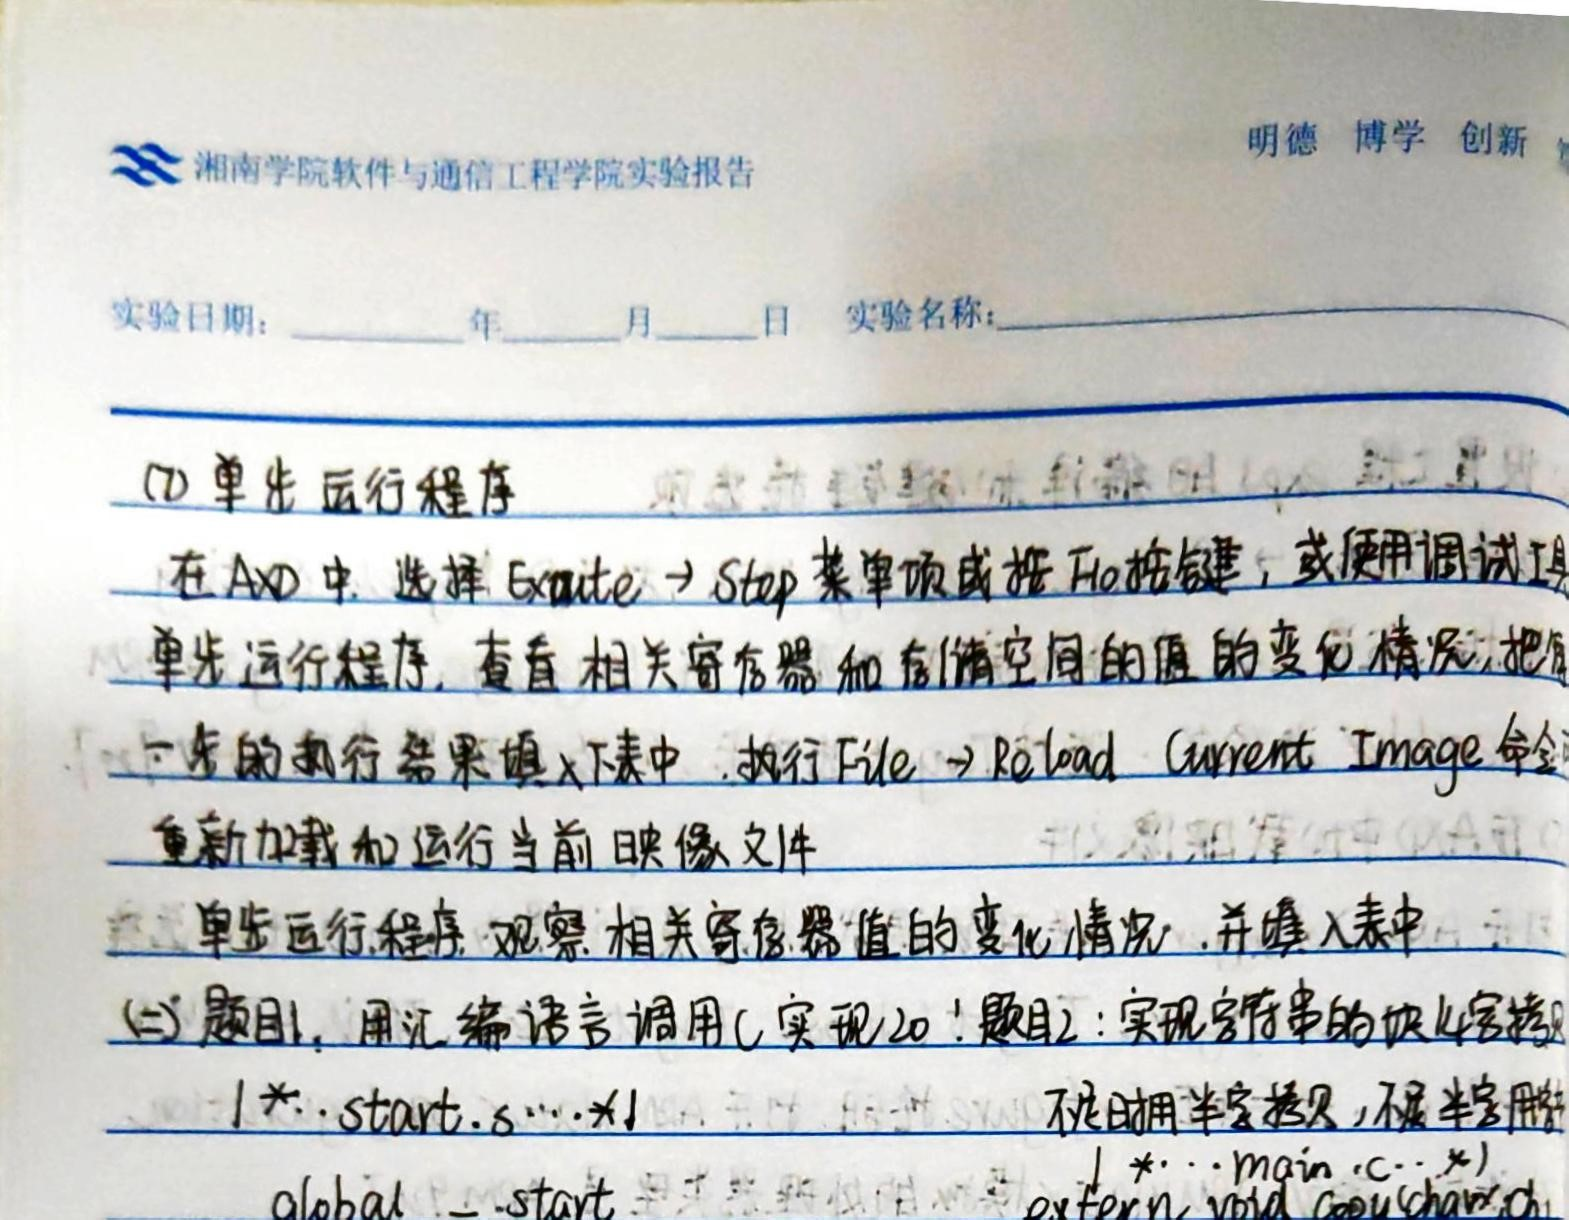 明德 博学 创新
湘南学院软件与通信工程学院实验报告
实验日期: 年 月 日 实验名称:
(7) 单步运行程序
在AXD中, 选择 Execute → Step 菜单项或按F10按键, 或使用调试工具
单步运行程序. 查看相关寄存器和存储空间的值的变化情况, 把每
一步的执行结果填入下表中. 执行File → Reload Current Image 命令
重新加载和运行当前映像文件
单步运行程序, 观察相关寄存器值的变化情况. 并填入表中
(二) 题目1. 用汇编语言调用C实现20! 题目2: 实现字符串的块4字拷贝
/*..start.s....*/ 不足时用半字拷贝, 不足半字用
/*...main.c..*/
global _start extern void copy(char*